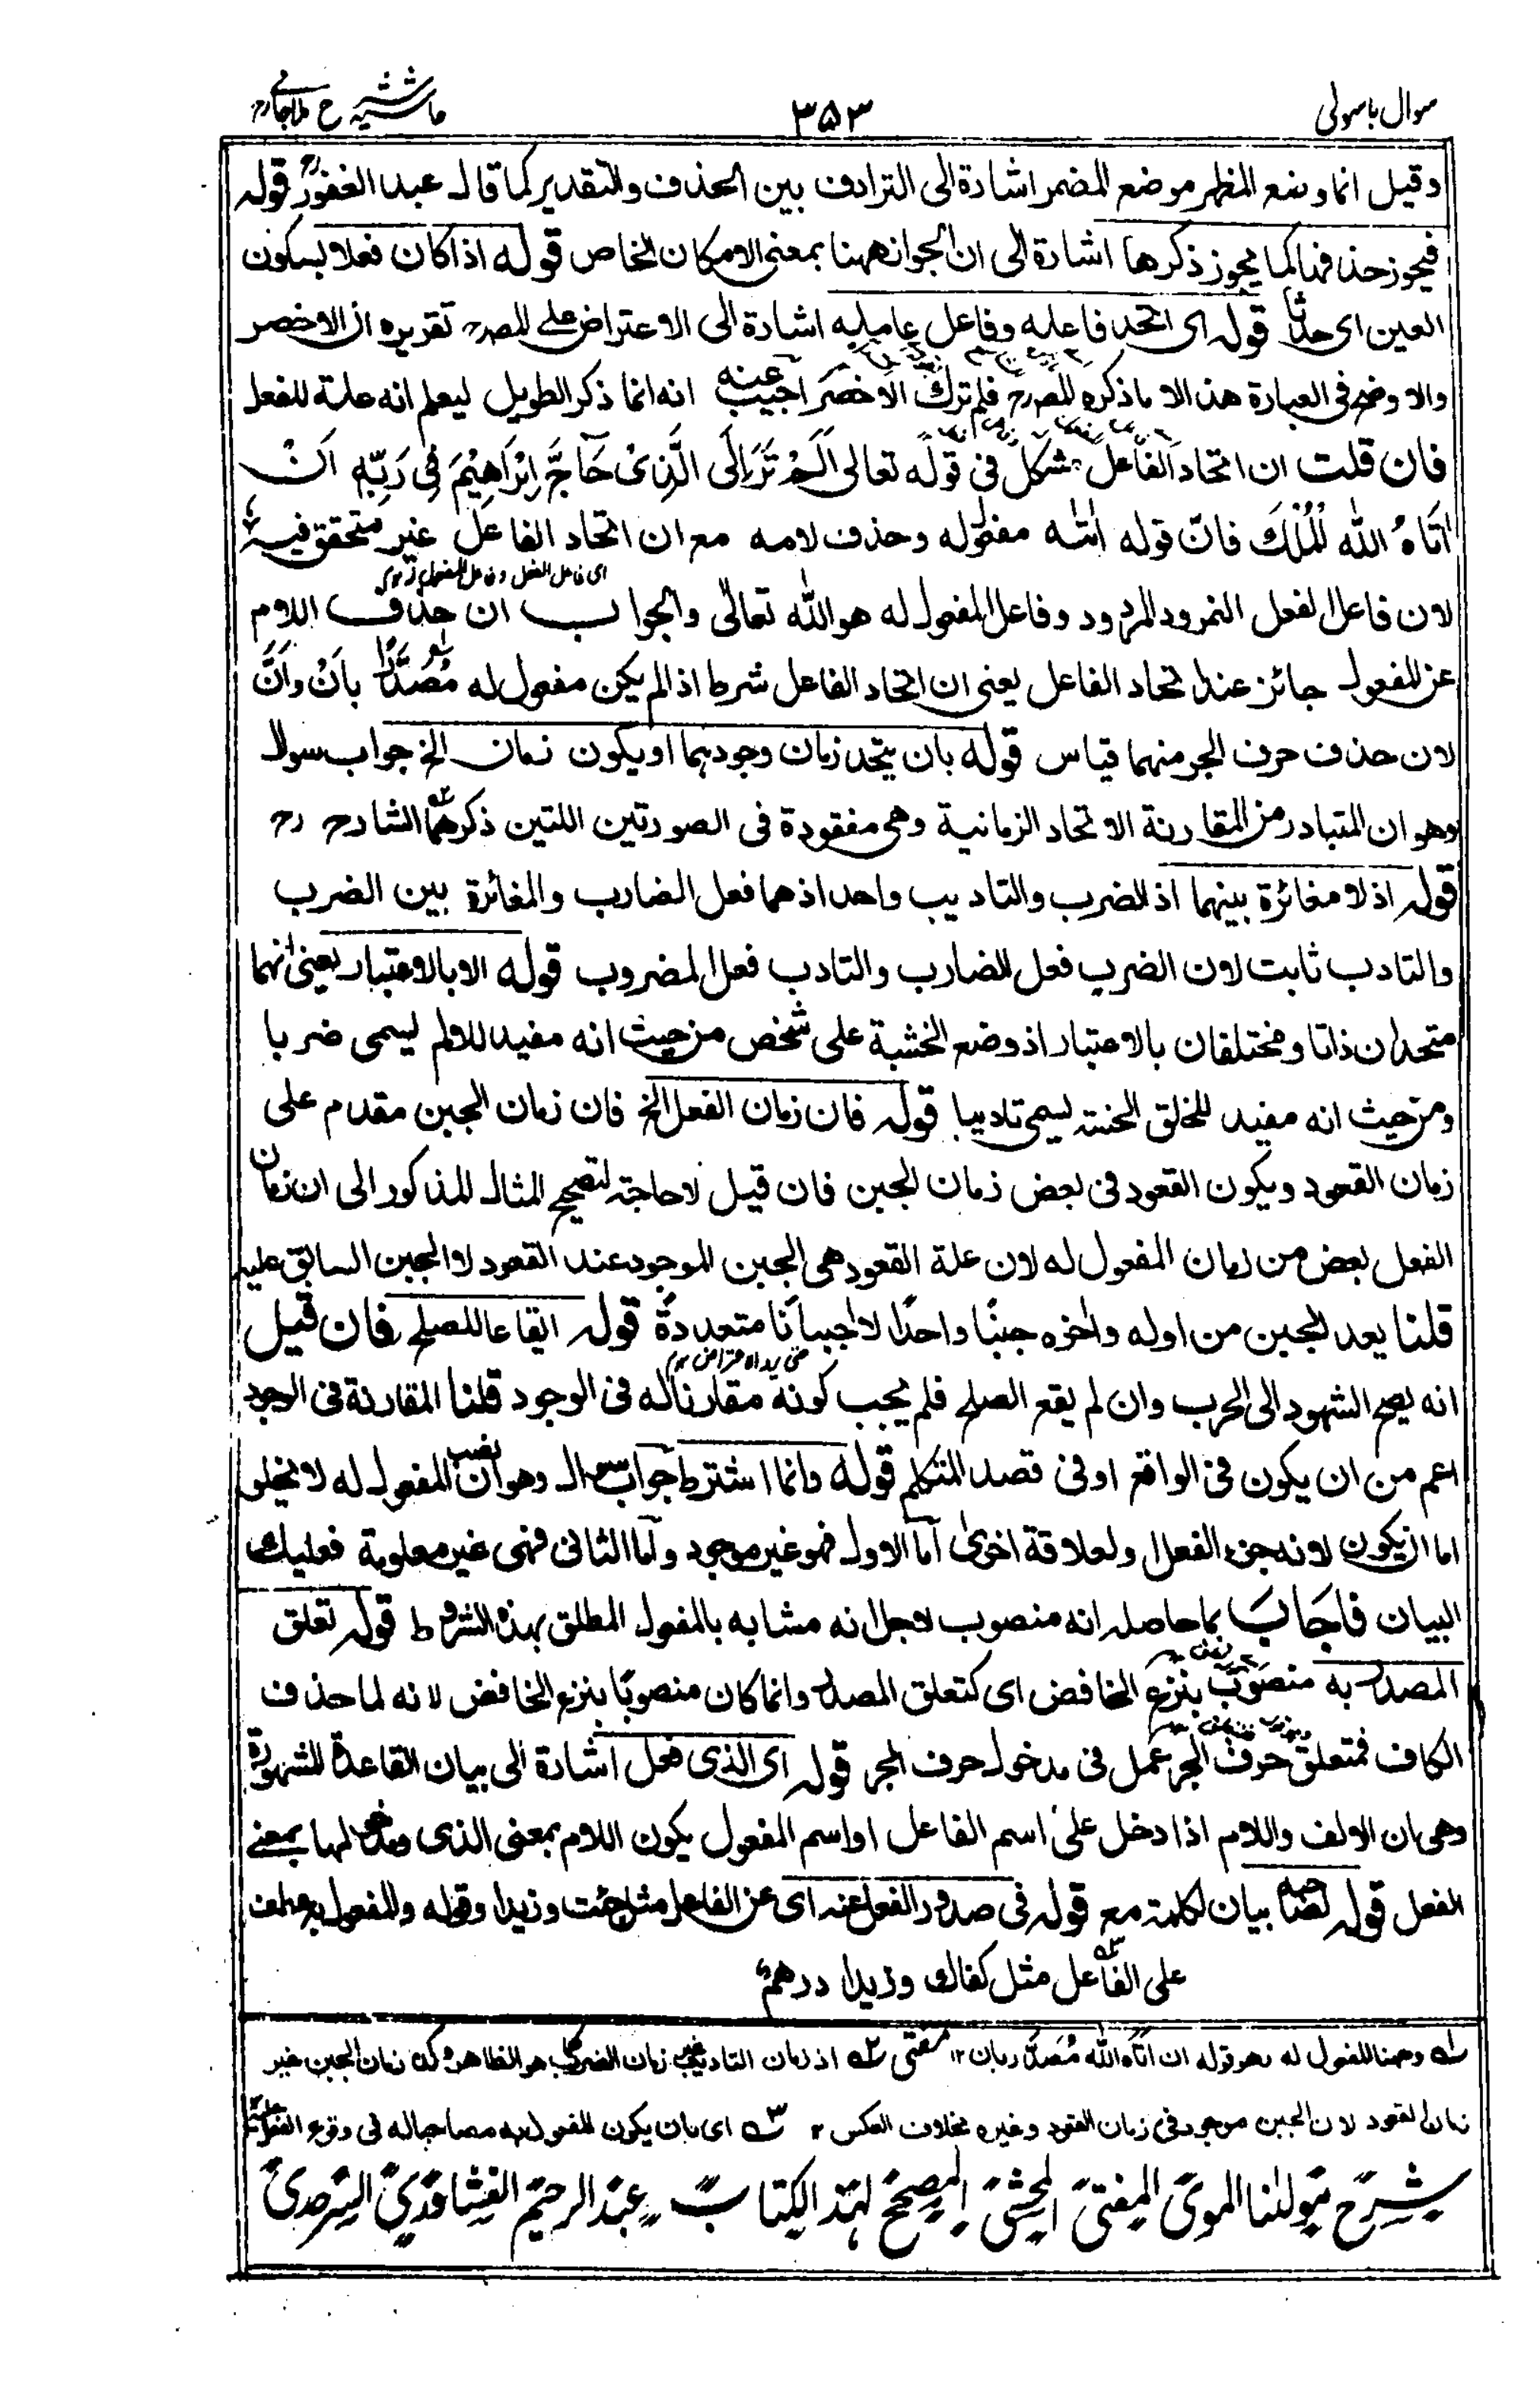 سوال باسولی
۳۵۳
حاشیہ ح ملاجامی
وقیل انما وضع المظهر موضع المضمر اشارة الی الترادف بین الحذف والتقدیر کما قال عبد الغفور قوله
فیجوز حذفها کما یجوز ذکرها اشارة الی ان الجواز ههنا بمعنی الامکان الخاص قوله اذا کان فعلا بسکون
العین ای حدثا قوله ای اتحد فاعله وفاعل عامله اشارة الی الاعتراض علی المصرح تقریره ان الاخصر
والاوضح فی العبارة هذا لا ما ذکره المصرح فلم ترك الاخصر اجیب عنه انه انما ذکر الطویل لیعلم انه علة للفعل
فان قلت ان اتحاد الفاعل مشکل فی قوله تعالی اَلَمْ تَرَ اِلَی الَّذِیْ حَآجَّ اِبْرَاهِیْمَ فِیْ رَبِّهٖ اَنْ
اٰتَاهُ اللّٰهُ الْمُلْكَ فانّ قوله اٰتٰه مفعول له وحذف لامه مع ان اتحاد الفاعل غیر متحقق فیه
لان فاعل الفعل النمرود المردود وفاعل المفعول له هو الله تعالی والجواب ان حذف اللام
عن المفعول جائز عند اتحاد الفاعل یعنی ان اتحاد الفاعل شرط اذا لم یکن مفعول له مُصَدَّرًا بأَنْ وأَنَّ
لان حذف حرف الجر منهما قیاس قوله بان یتحد زمان وجودهما او یکون زمان الخ جواب سوال
وهو ان المتبادر من المقارنة الاتحاد الزمانیة وهی مفقودة فی الصورتین اللتین ذکرهما الشارح رح
قوله اذ لا مغائرة بینهما اذ الضرب والتادیب واحد اذ هما فعل الضارب والمغائرة بین الضرب
والتادب ثابت لان الضرب فعل الضارب والتادب فعل المضروب قوله الا بالاعتبار یعنی انهما
متحدان ذاتا ومختلفان بالاعتبار اذ وضع الخشبة علی شخص من حیث انه مفید للالم یسمی ضربا
ومن حیث انه مفید للخلق الحسنة یسمی تادیبا قوله فان زمان الفعل الخ فان زمان الجبن مقدم علی
زمان القعود ویکون القعود فی بعض زمان الجبن فان قیل لا حاجة لتصحیح المثال المذکور الی ان زمان
الفعل بعض من زمان المفعول له لان علة القعود هی الجبن الموجود عند القعود لا الجبن السابق علیه
قلنا یعد الجبن من اوله واخره جبنًا واحدًا لا اجبانًا متعددةً قوله ایقاعا للصلح فان قیل
انه یصح الشهود الی الحرب وان لم یقع الصلح فلم یجب کونه مقارنا له فی الوجود قلنا المقارنة فی الوجود
اعم من ان یکون فی الواقع او فی قصد المتکلم قوله وانما اشترط جواب سوال وهو ان نصب المفعول له لا یخلو
اما ان یکون لانه جزء الفعل او لعلاقة اخری اما الاول فهو غیر موجود واما الثانی فهی غیر معلومة فعلیك
البیان فاجَابَ بما حاصله انه منصوب لاجل انه مشابه بالمفعول المطلق بهذه الشروط قوله تعلق
المصدر به منصوب بنزع الخافض ای کتعلق المصدر وانما کان منصوبا بنزع الخافض لانه لما حذف
الکاف فمتعلق حرف الجر عمل فی مدخول حرف الجر قوله ای الذی فعل اشارة الی بیان القاعدة المشهورة
وهی ان الالف واللام اذا دخل علی اسم الفاعل او اسم المفعول یکون اللام بمعنی الذی ومدخولها بمعنی
الفعل قوله لمصاحبة بیان لکلمة مع قوله فی صدور الفعل عنه ای عن الفاعل مثل جئت وزیدا وقوله والمفعول به عطف
علی الفاعل مثل کفاك وزیدا درهم
وههنا المفعول له هو قوله ان اتاه الله مُصَدَّر بان ۱۲ مفتی اذ زمان التادیب عین زمان الضرب کما هو الظاهر زمان الجبن غیر
زمان القعود لان الجبن موجود فی زمان القعود وغیره بخلاف العکس ۱۲ ای بان یکون المفعول به مصاحبا له فی وقوع الفعل علیه
شرح مولٰنا المفتی المحشی المصحح لهذ الکتاب عبد الرحیم